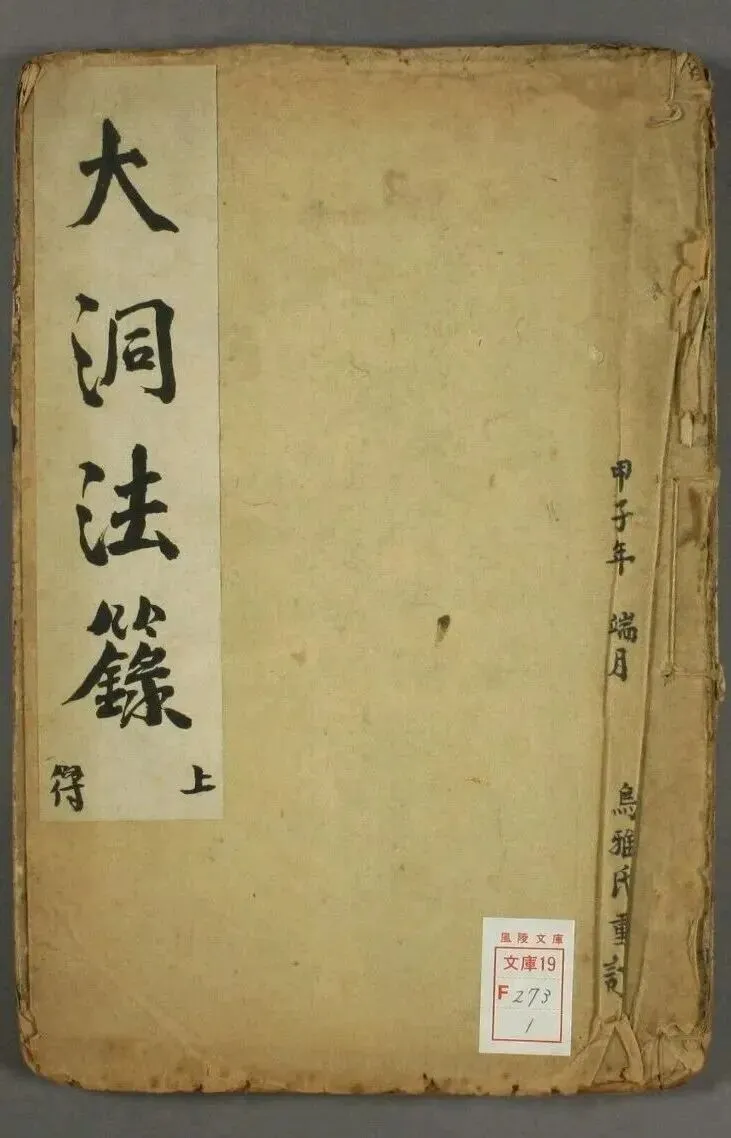 大洞法籙
上
符
甲子年 端月 烏雅氏重
風陵文庫
文庫19
F 273
1